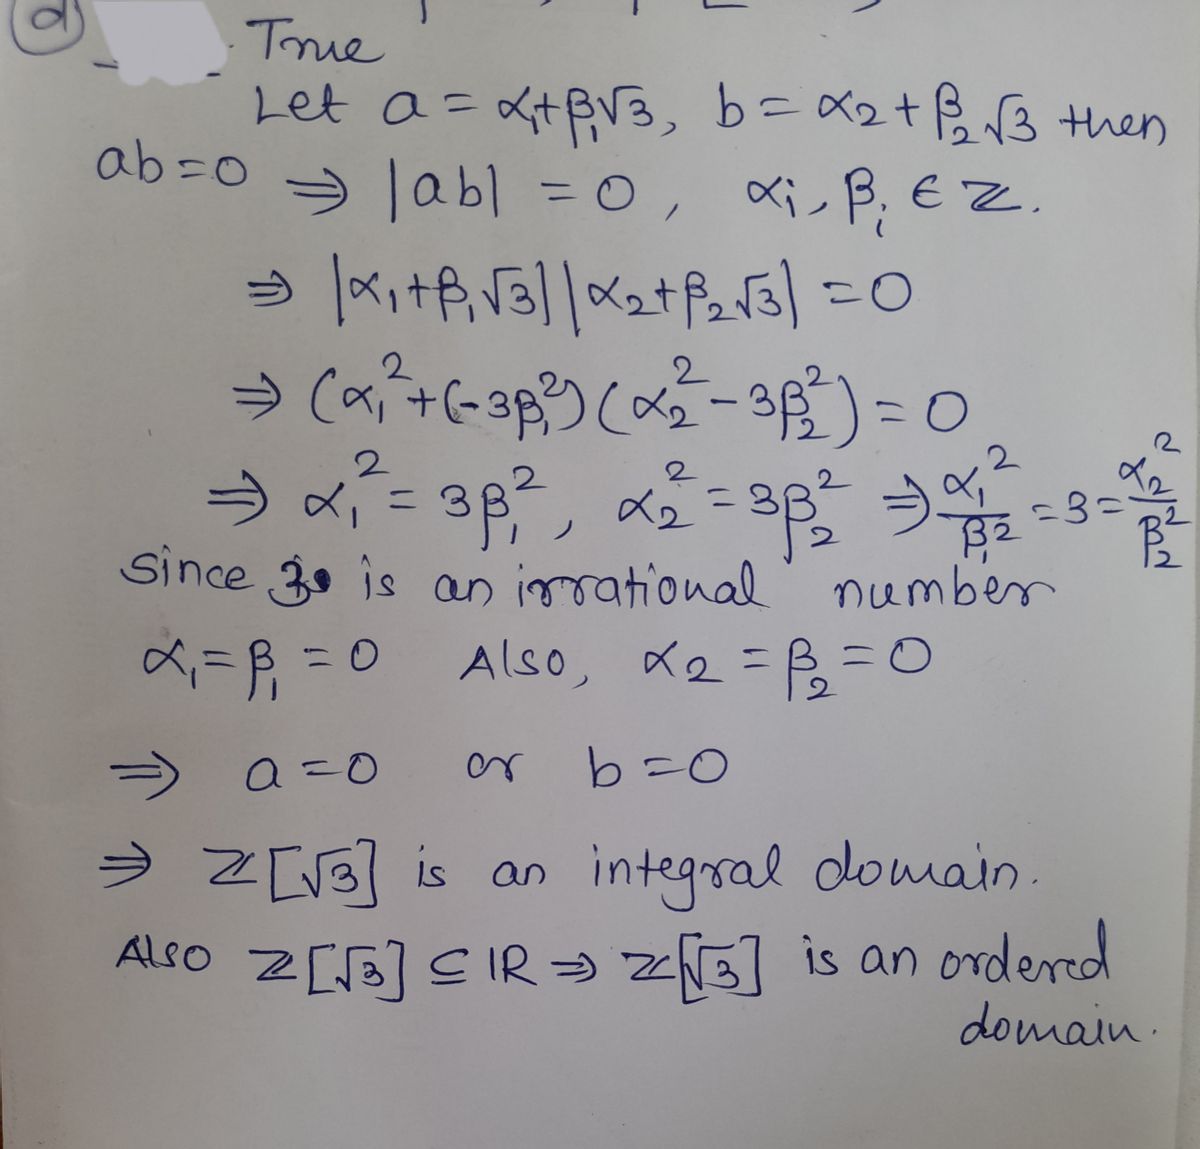 d) True
Let a = α₁+β₁√3, b = α₂+β₂√3 then
ab=0 ⇒ |ab| = 0, αᵢ, βᵢ ∈ ℤ.
⇒ |α₁+β₁√3||α₂+β₂√3| = 0
⇒ (α₁²+(-3β₁²)(α₂²-3β₂²) = 0
⇒ α₁² = 3β₁², α₂² = 3β₂² ⇒ α₁²/β₁² = 3 = α₂²/β₂²
Since 3 is an irrational number
α₁=β₁=0 Also, α₂=β₂=0
⇒ a=0 or b=0
⇒ ℤ[√3] is an integral domain.
Also ℤ[√3] ⊆ ℝ ⇒ ℤ[√3] is an ordered
domain.